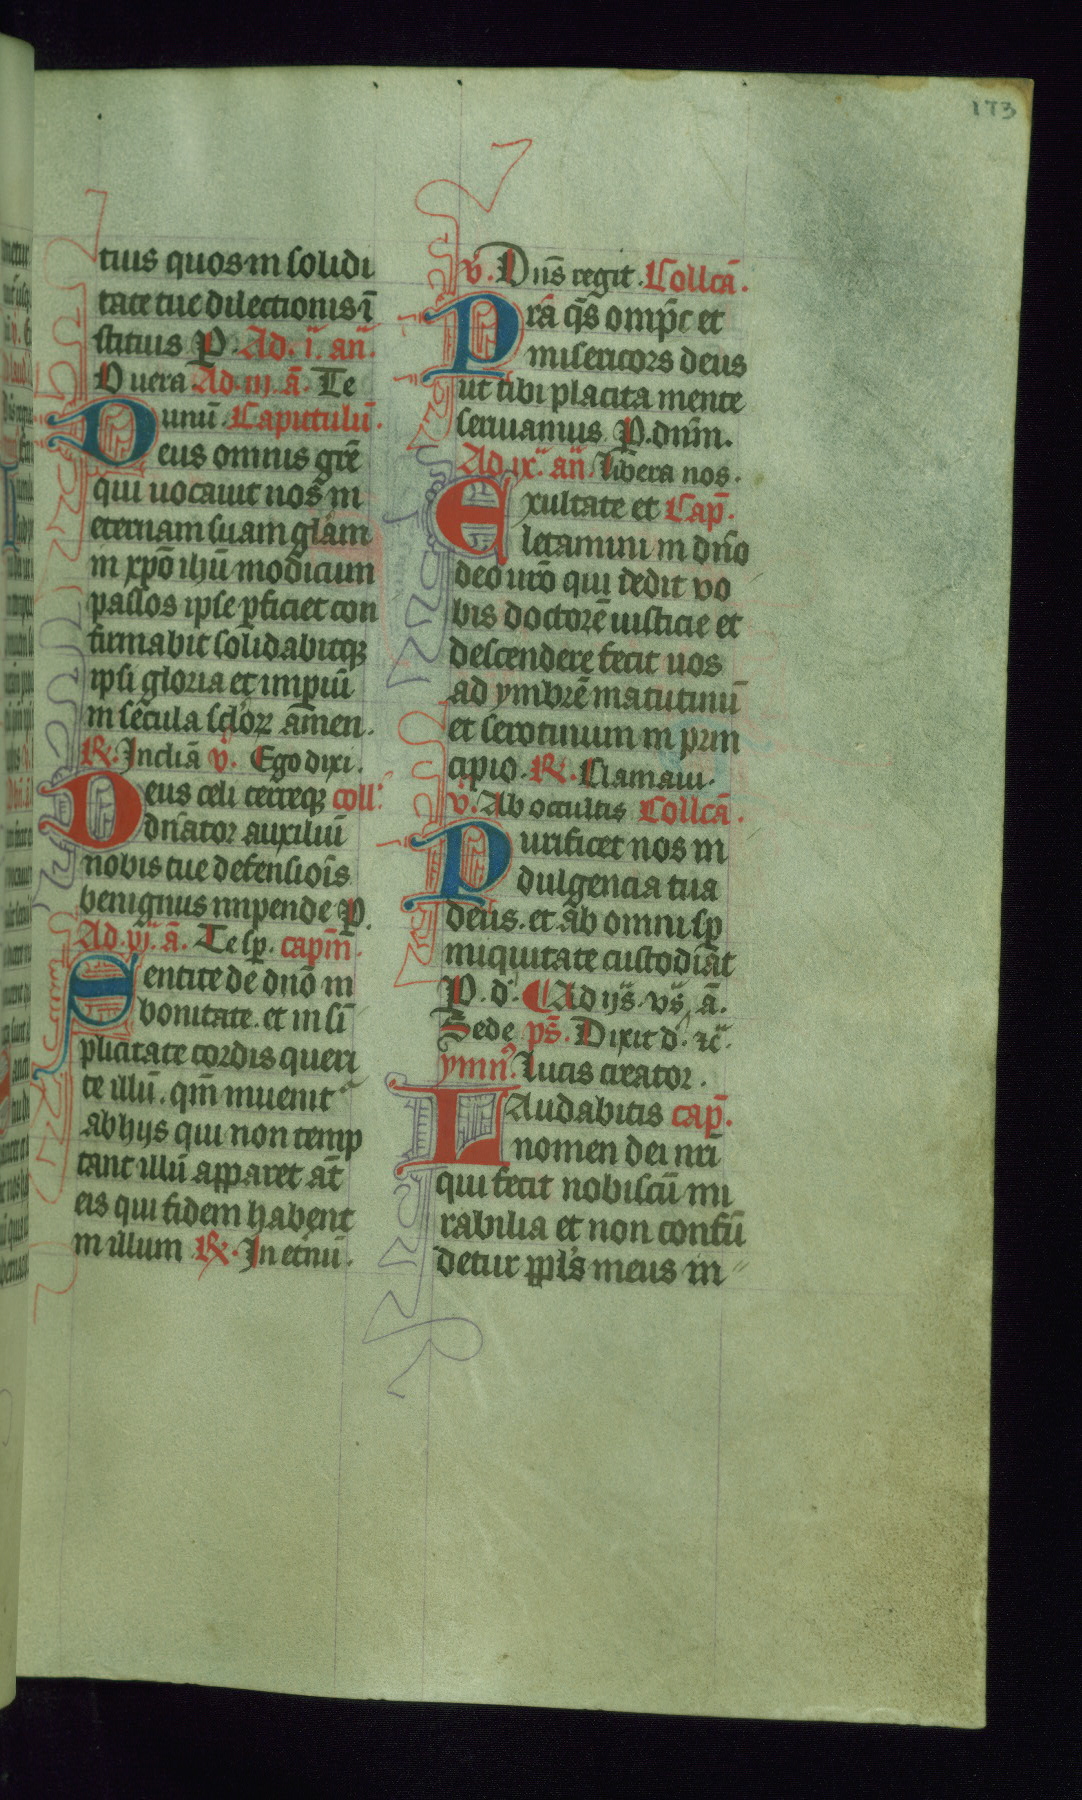 173
tuis quos in solidi
tate tue dilectionis ī
stituis P. Ad. i. an̄.
O uera Ad. iii. ā. Te
unū. Capittulū.
Deus omnis grē
qui uocauit nos in
eternam suam glām
in xpō ihū modicum
passos ipse pficiet con
firmabit solidabitqꝫ
ipsi gloria et impiū
in secula sclōꝝ amen.
R.Incliā v. Ego dixi.
Deus celi terreqꝫ coll.
dn̄ator auxiliū
nobis tue defensiōis
benignus impende P.
Ad. vi. ā. Te sp. capm̄.
Sentite de dnō in
bonitate. et in si
plicitate cordis queri
te illū. qm̄ inuenit᷑
ab hijs qui non temp
tant illū apparet aūt
eis qui fidem habent
in illum R. In etnū.
v. Dn̄s regit. Collcā.
Prā qs̄ omp̄c et
misericors deus
ut tibi placita mente
seruamus P. dnm̄.
Ad ix. an̄. libera nos.
Exultate et Cap̄.
letamini in dn̄o
deo uro̅ qui dedit vo
bis doctorē iusticie et
descendere fecit uos
ad ymbrē matutinū
et serotinum in prin
cipio. R. Clamaui.
v. Ab occultis Collcā.
Purificet nos in
dulgencia tua
deus. et ab omni sp̱
iniquitate custodiat
P. d. Ad ijs. vs̄. ā.
Sede ps̄. Dixit d. ⁊c.
ymn⁹. Lucis creator.
LAudabitis cap̄.
nomen dei nri̅
qui fecit nobiscū mi
rabilia et non confū
detur ppl̄s meus in